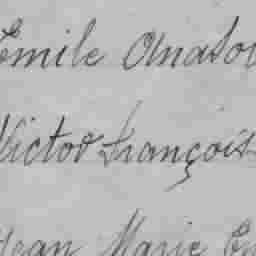 Emile Anatol
Victor François
Jean Marie E